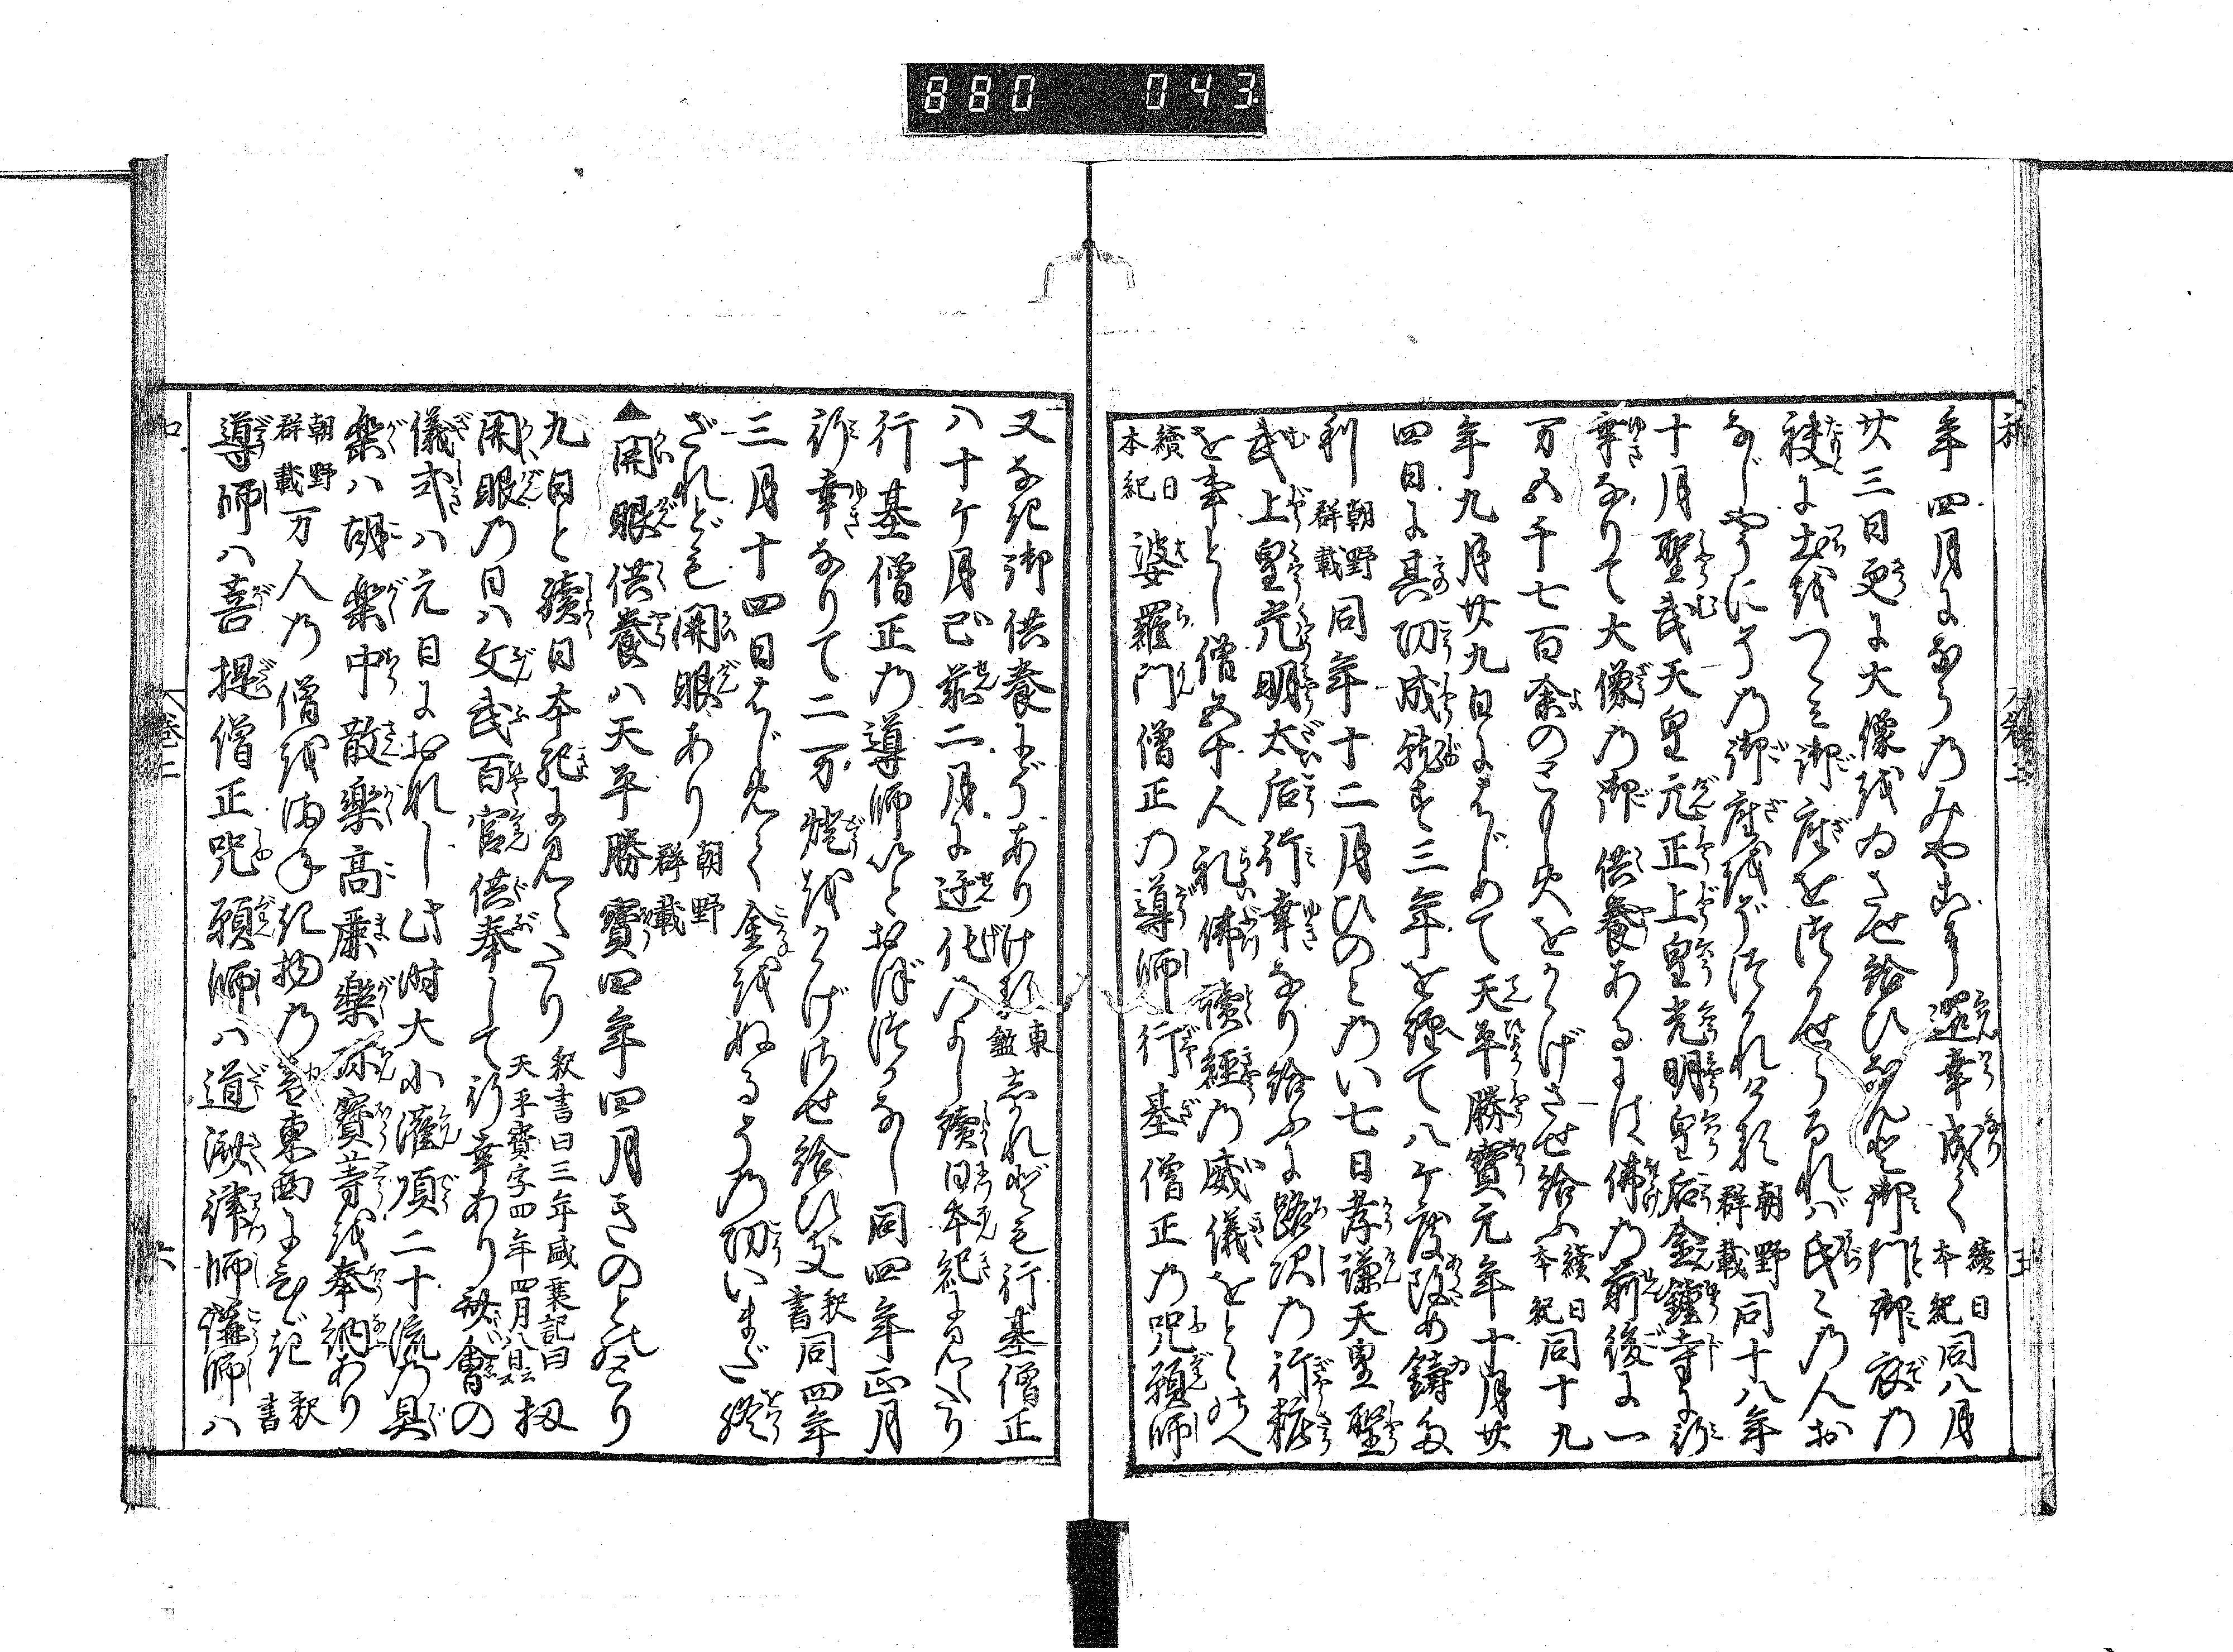 880 043
年四月ならのみやこに還幸成て 續日本紀 同八月
廿三日更に大像をゐさせ給ひ 御門御衣の
袂に土をつゝみ御座をつかせらるれば氏々の人お
なじやうにその御座をぞつかれける 朝野群載 同十八年
十月聖武天皇元正上皇光明皇后金鐘寺に行
幸なりて大像の御供養あるには佛の前後に一
万五千七百余のともし火をかゝげさせ給ふ 續日本紀 同十九
年九月廿九日にはじめて天平勝寶元年十月廿
四日に其功成就す三年を經て八ケ度改め鑄
朝野群載 同年十二月ひのとのい七日孝謙天皇聖
武上皇光明太后行幸なり給ふに路次の行粧
を事とし僧五千人礼佛讀經の威儀をとゝのへ
續日本紀 婆羅門僧正の導師行基僧正の呪願師
又なき御供養にぞありける 東鑑 しかれども行基僧正
八十ケ月已前二月に遷化のよし續日本紀に見へたり
行基僧正の導師いとおぼつかなし同四年正月
行幸なりて二万燈をかゝげさせ給ひ 釈書 同四年
三月十四日はじめて金をぬるその功いまだ終
ざれども開眼あり 朝野群載
▲開眼供養ハ天平勝寶四年四月きのとのとり
九日と續日本紀に見へたり 釈書曰三年盛衰記曰天平寶字四年四月八日云云 扨
開眼の日ハ文武百官供奉して行幸あり 會の
儀式ハ元日におなし此時大小灌頂二十流の具
樂ハ胡樂中散樂高麗樂 寶等を奉納あり
朝野群載 万人の僧をまねき 物の 東西に 釈書
導師ハ菩提僧正呪願師ハ道璿律師講師ハ
卷二 六